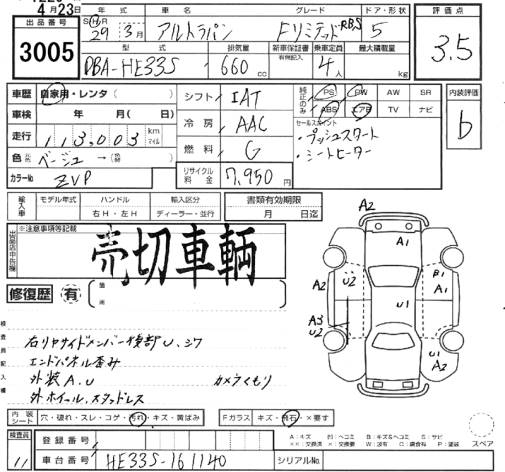 4月23日
出品番号 3005
年式 SⒽR 29年3月
車名 アルトラパン
グレード FリミテッドRBS
ドア・形状 5
評価点 3.5
型式 DBA-HE33S
排気量 660cc
新車保証書 有無記入
乗車定員 4人
最大積載量 kg
車歴 自家用・レンタ( )
車検 年 月( 日)
走行 113,003 km マイル
色 ベージュ→(替)
カラーNo ZVP
シフト IAT
冷房 AAC
燃料 G
リサイクル料金 7,950円
純正のみ PS PW AW SR
ABS エアB TV ナビ
セールスポイント
・プッシュスタート
・シートヒーター
内装評価 b
輸入車 モデル年式 ハンドル 右H・左H 輸入区分 ディーラー・並行
書類有効期限 月 日迄
出品店申告欄 ※注意事項等記載
売切車輌
修復歴 有 箇所
検査員記入欄
右リヤサイドメンバー後部U、シワ
エンドパネル歪み
外装A.U カメラくもり
外ホイール、スタッドレス
内装シート 穴・破れ・スレ・コゲ・汚れ・キズ・黄ばみ
Fガラス キズ・飛石・×要す
検査員 11
登録番号
車台番号 HE33S-161140
シリアルNo.
A2
A1
A2 U2 B1 A2
U1
A3 U2
U1 A1
A2
スペア
A:キズ U:凹ミ B:キズ&凹ミ S:サビ
××:交換済 ×:要交換 W:波有 C:腐食有 P:塗装